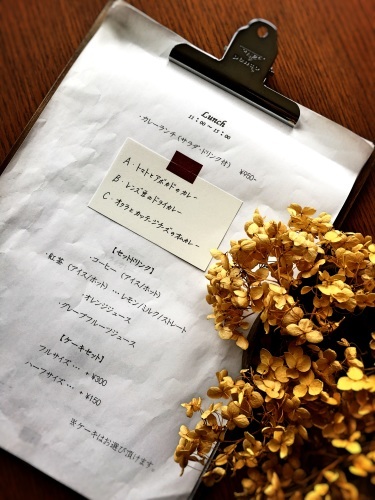 Lunch
11:00~15:00
・カレーランチ(サラダ・ドリンク付) ¥950-
A・トマトとアボカドのカレー
B・レンズ豆のドライカレー
C・オクラとカッテージチーズのカレー
【セットドリンク】
・コーヒー (アイス/ホット)
・紅茶 (アイス/ホット) … レモン/ミルク/ストレート
オレンジジュース
・グレープフルーツジュース
【ケーキセット】
フルサイズ … +¥300
ハーフサイズ … +¥150
※ケーキはお選び頂けます。